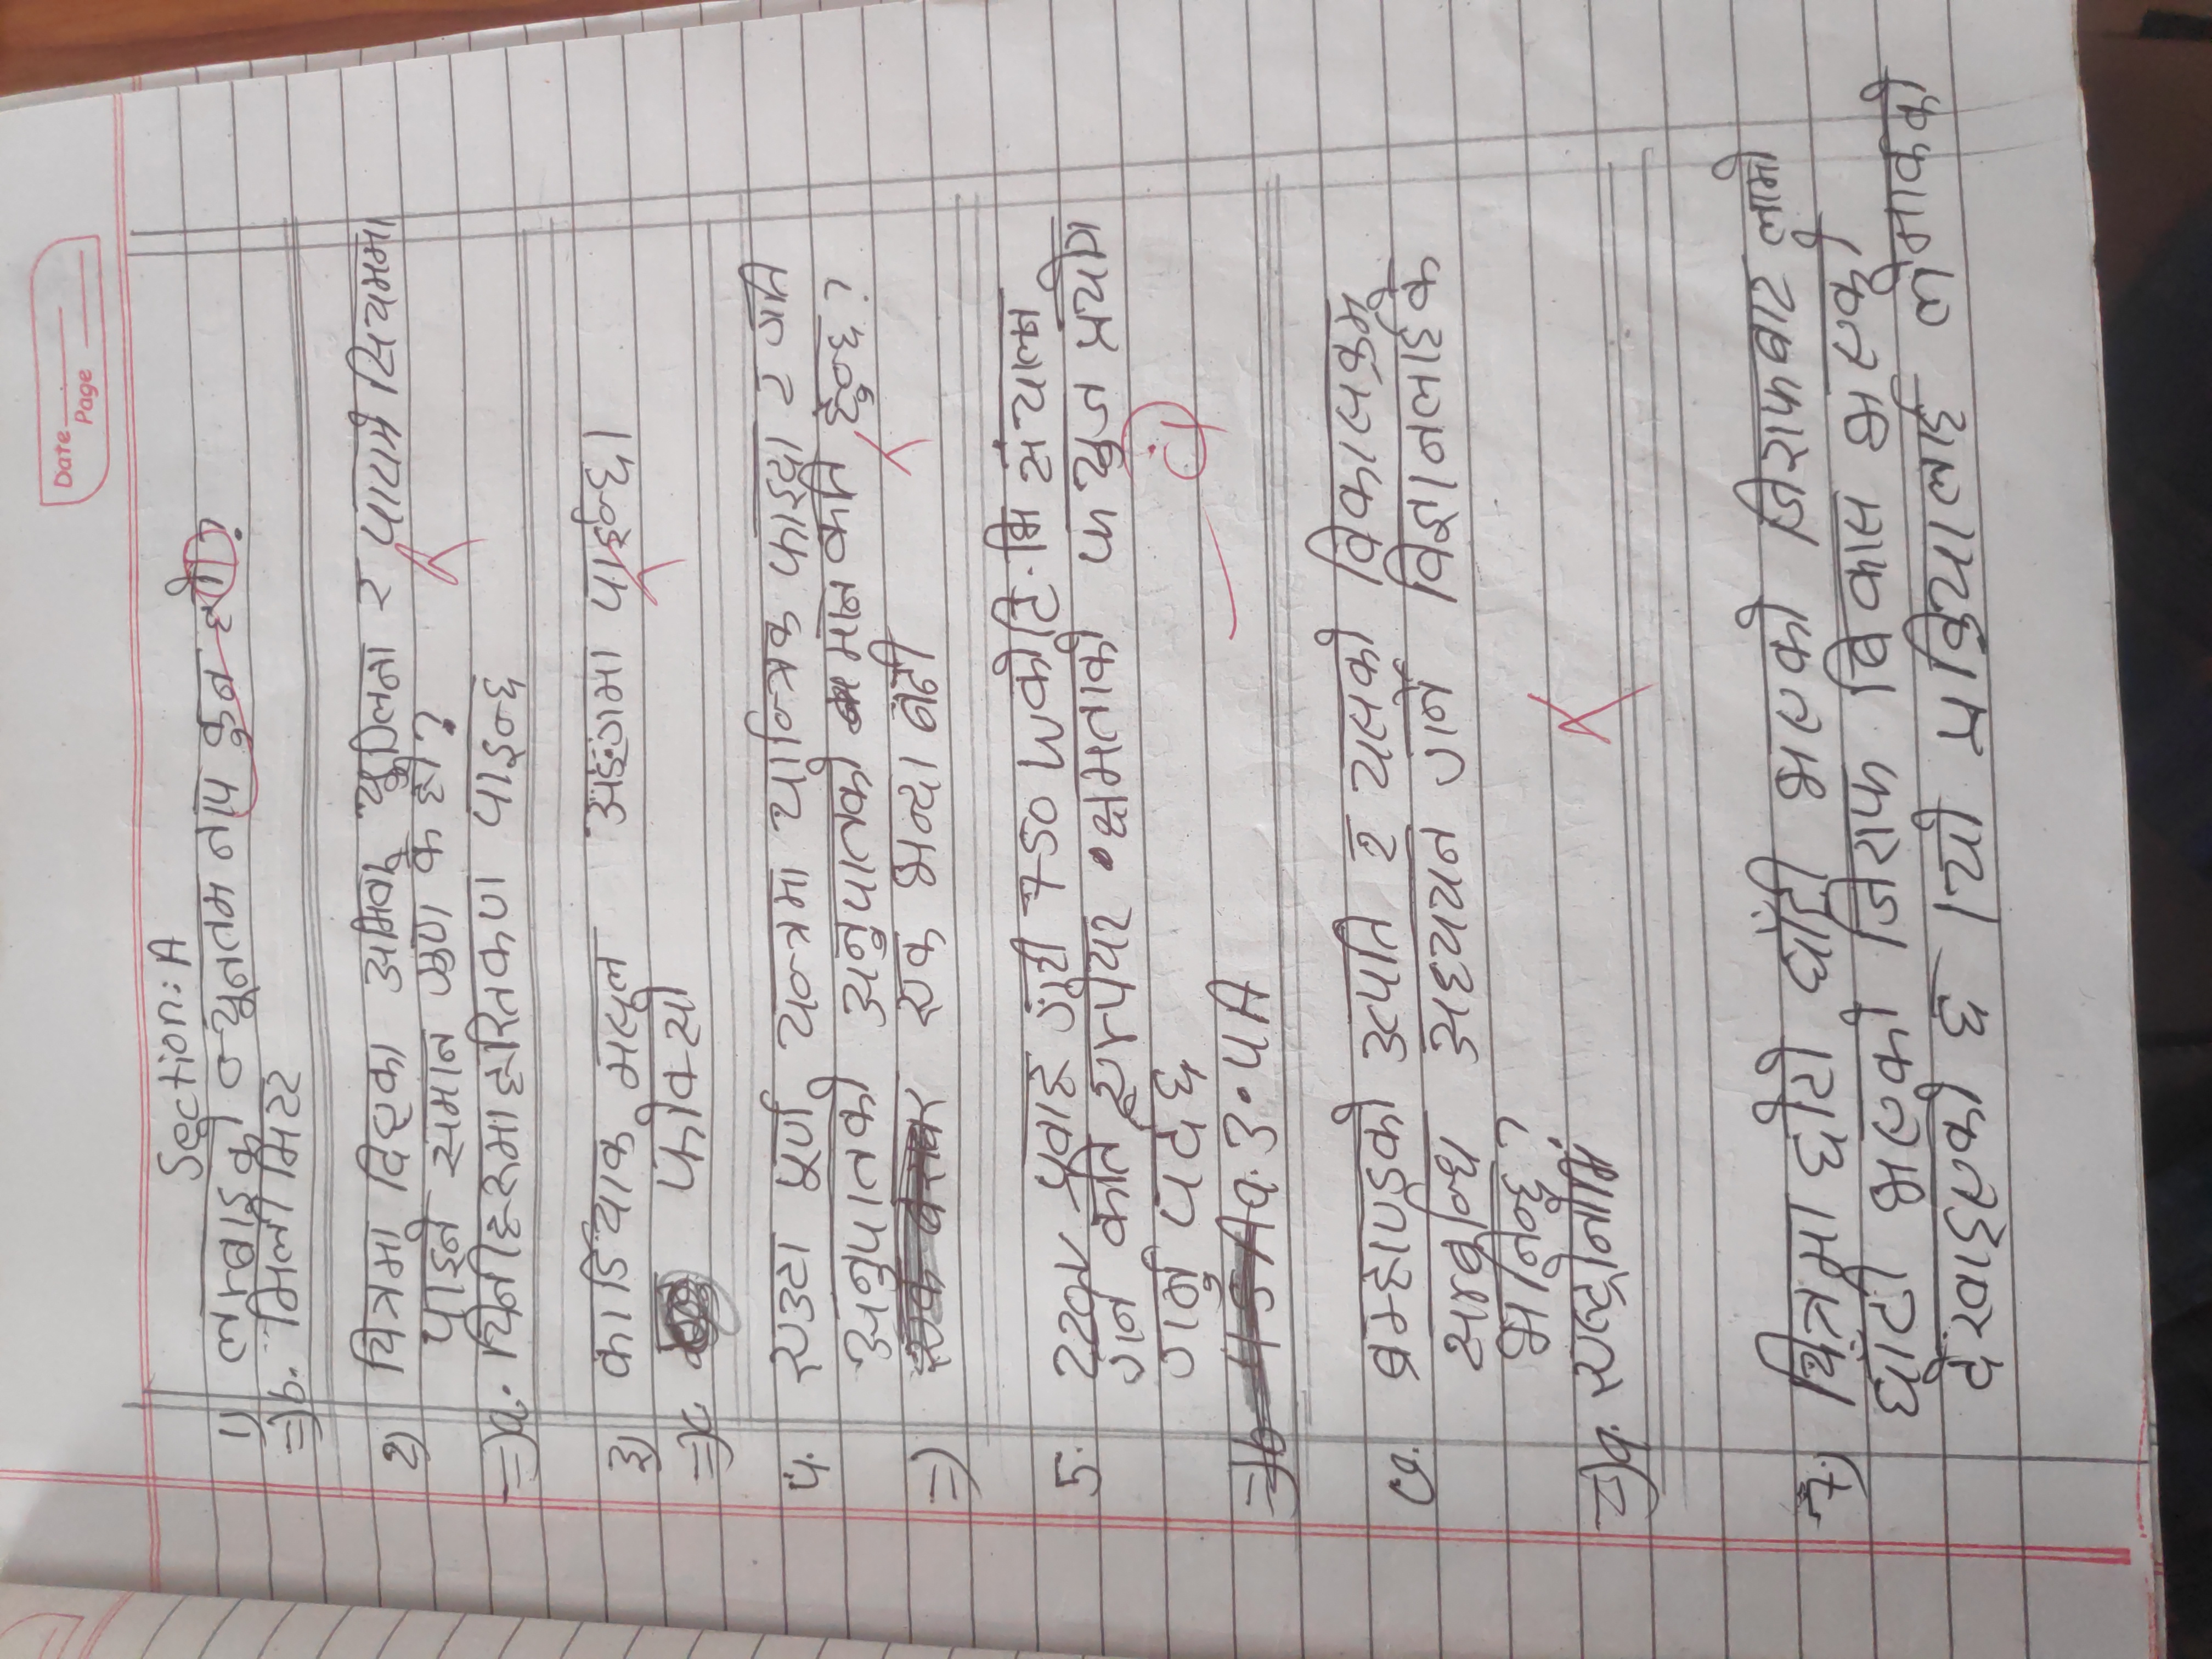 Date
Page
Section: A
1) लम्बाइको न्यूनतम नाप कुन हो?
=> b. मिली मिटर
२) चित्रमा दिइएका अमिवा, युग्लिना र पारामे सियममा
पाइने समान गुण के हो?
=> a. यिनीहरुमा हरितकण पाइन्छ
३) कार्डियाक मसल अङ्गमा पाईन्छ।
=> c. फोक्सो
४. एउटा पूर्ण यन्त्रमा यान्त्रिक फाइदा र गति
अनुपातको अनुपातको मान कति हुन्छ?
=> एक भन्दा बढी
5. 220V प्रवाह गरी 750 W को टि.भि संचालन
गर्न कति एम्पियर क्षमताको फ्युज प्रयोग
गर्नु पर्दछ
=> a. 3.4A
६. ब्रम्हाण्डको उत्पति र यसको विकासक्रम
सम्बन्धि अध्ययन गर्ने विज्ञानलाई के
भनिन्छ?
=> a. एस्ट्रोनोमि
7) चित्रमा छोटो घाँटी भएको जिराफबाट लामो
घाँटी भएको जिराफ बिकास भएको
देखाइएको छ । यो प्रक्रियालाई लेमार्कको